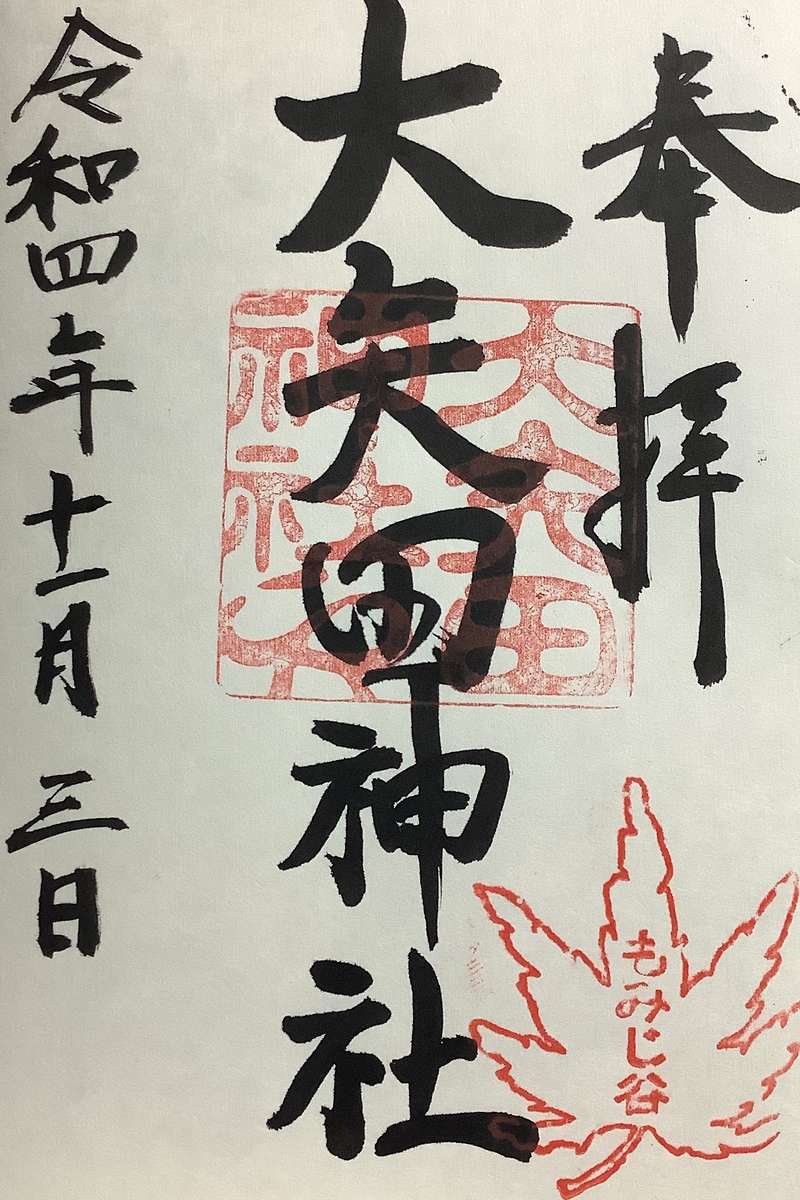 奉拝
大矢田神社
大矢田
神社
もみじ谷
令和四年十一月三日